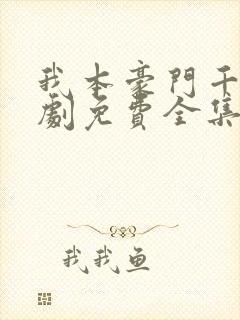 我本豪門千
劇免費全集
我我鱼